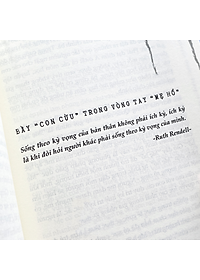 BẦY "CON CỪU" TRONG VÒNG TAY "MẸ HỔ"
Sống theo kỳ vọng của bản thân không phải ích kỷ, ích kỷ
là khi đòi hỏi người khác phải sống theo kỳ vọng của mình.
-Ruth Rendell-